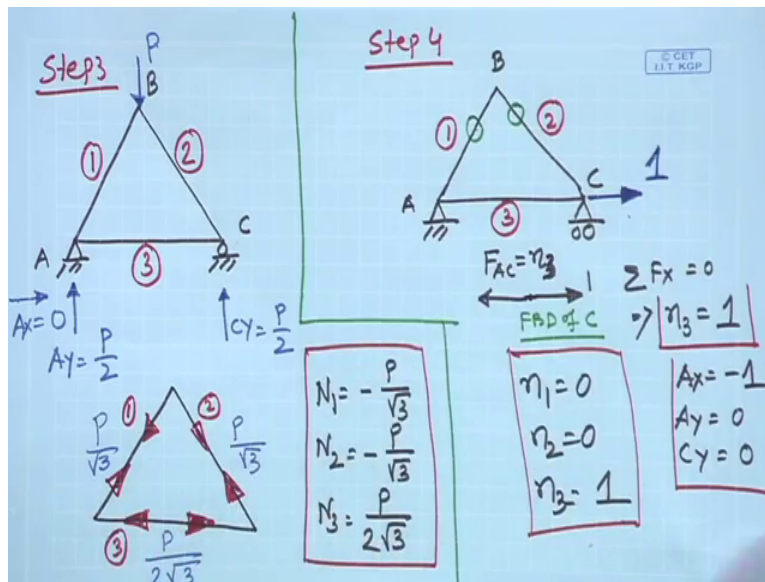 Step 3
P
B
①
②
③
A
C
Ax = 0
Ay = P/2
Cy = P/2
①
②
③
P/√3
P/√3
P/2√3
N₁ = - P/√3
N₂ = - P/√3
N₃ = P/2√3
Step 4
© CET
I.I.T. KGP
B
①
②
③
A
C
1
F_AC = n₃
1
FBD of C
Σ Fx = 0
⇒ n₃ = 1
n₁ = 0
n₂ = 0
n₃ = 1
Ax = -1
Ay = 0
Cy = 0